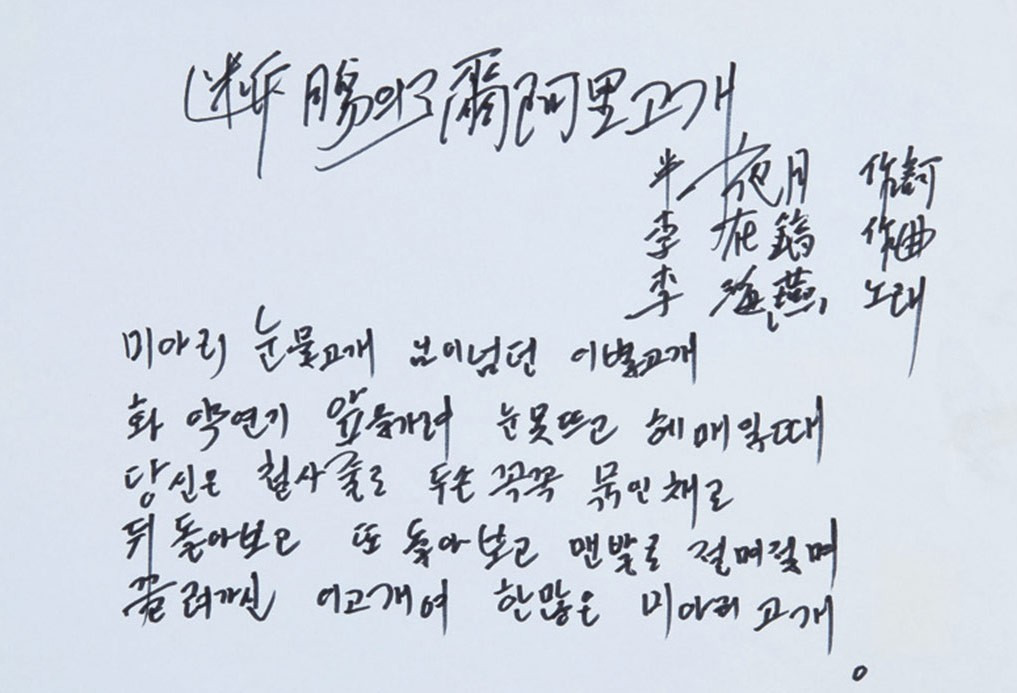 斷腸의 彌阿里고개
半夜月 作詞
李在鎬 作曲
李海燕 노래
미아리 눈물고개 님이넘던 이별고개
화약연기 앞을가려 눈못뜨고 헤매일때
당신은 철사줄로 두손꼭꼭 묶인채로
뒤돌아보고 또돌아보고 맨발로 절며절며
끌려가신 이고개여 한많은 미아리고개